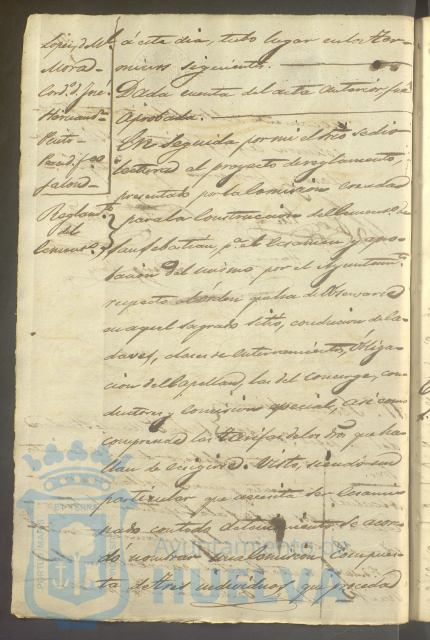 Lopez, d. Ml.
Mora
Cord.ª d. Jose
Hernand.z
Peito
Reglam.to
del
Cemen.to
á este dia, tubo lugar en los ter-
minos siguientes.
Dada cuenta del acta anterior fué
aprobada.
En seguida por mi el Srio se dio
lectura al proyecto de reglamento,
presentado por la Comision creada
para la Construccion del Cement.o de
San Sebastian, p.ª el Ecsamen y apro-
bacion del mismo, por el Ayuntam.to
respecto al órden que ha de observarse
en aquel sagrado sitio, conducion de ca-
daveres, clases de enterramientos, Obliga-
cion del Capellan, las del Conserge, con-
ductores y Comision especial, asi como
comprende las tarifas de los dros que ha-
llan de ecsigirse. Visto, siendo un
particular que necesita ser Ecsami-
nado con todo detenimiento se acor-
dó nombrar una Comision compues-
ta de tres individuos, que proceda
Ayuntamiento de
HUELVA